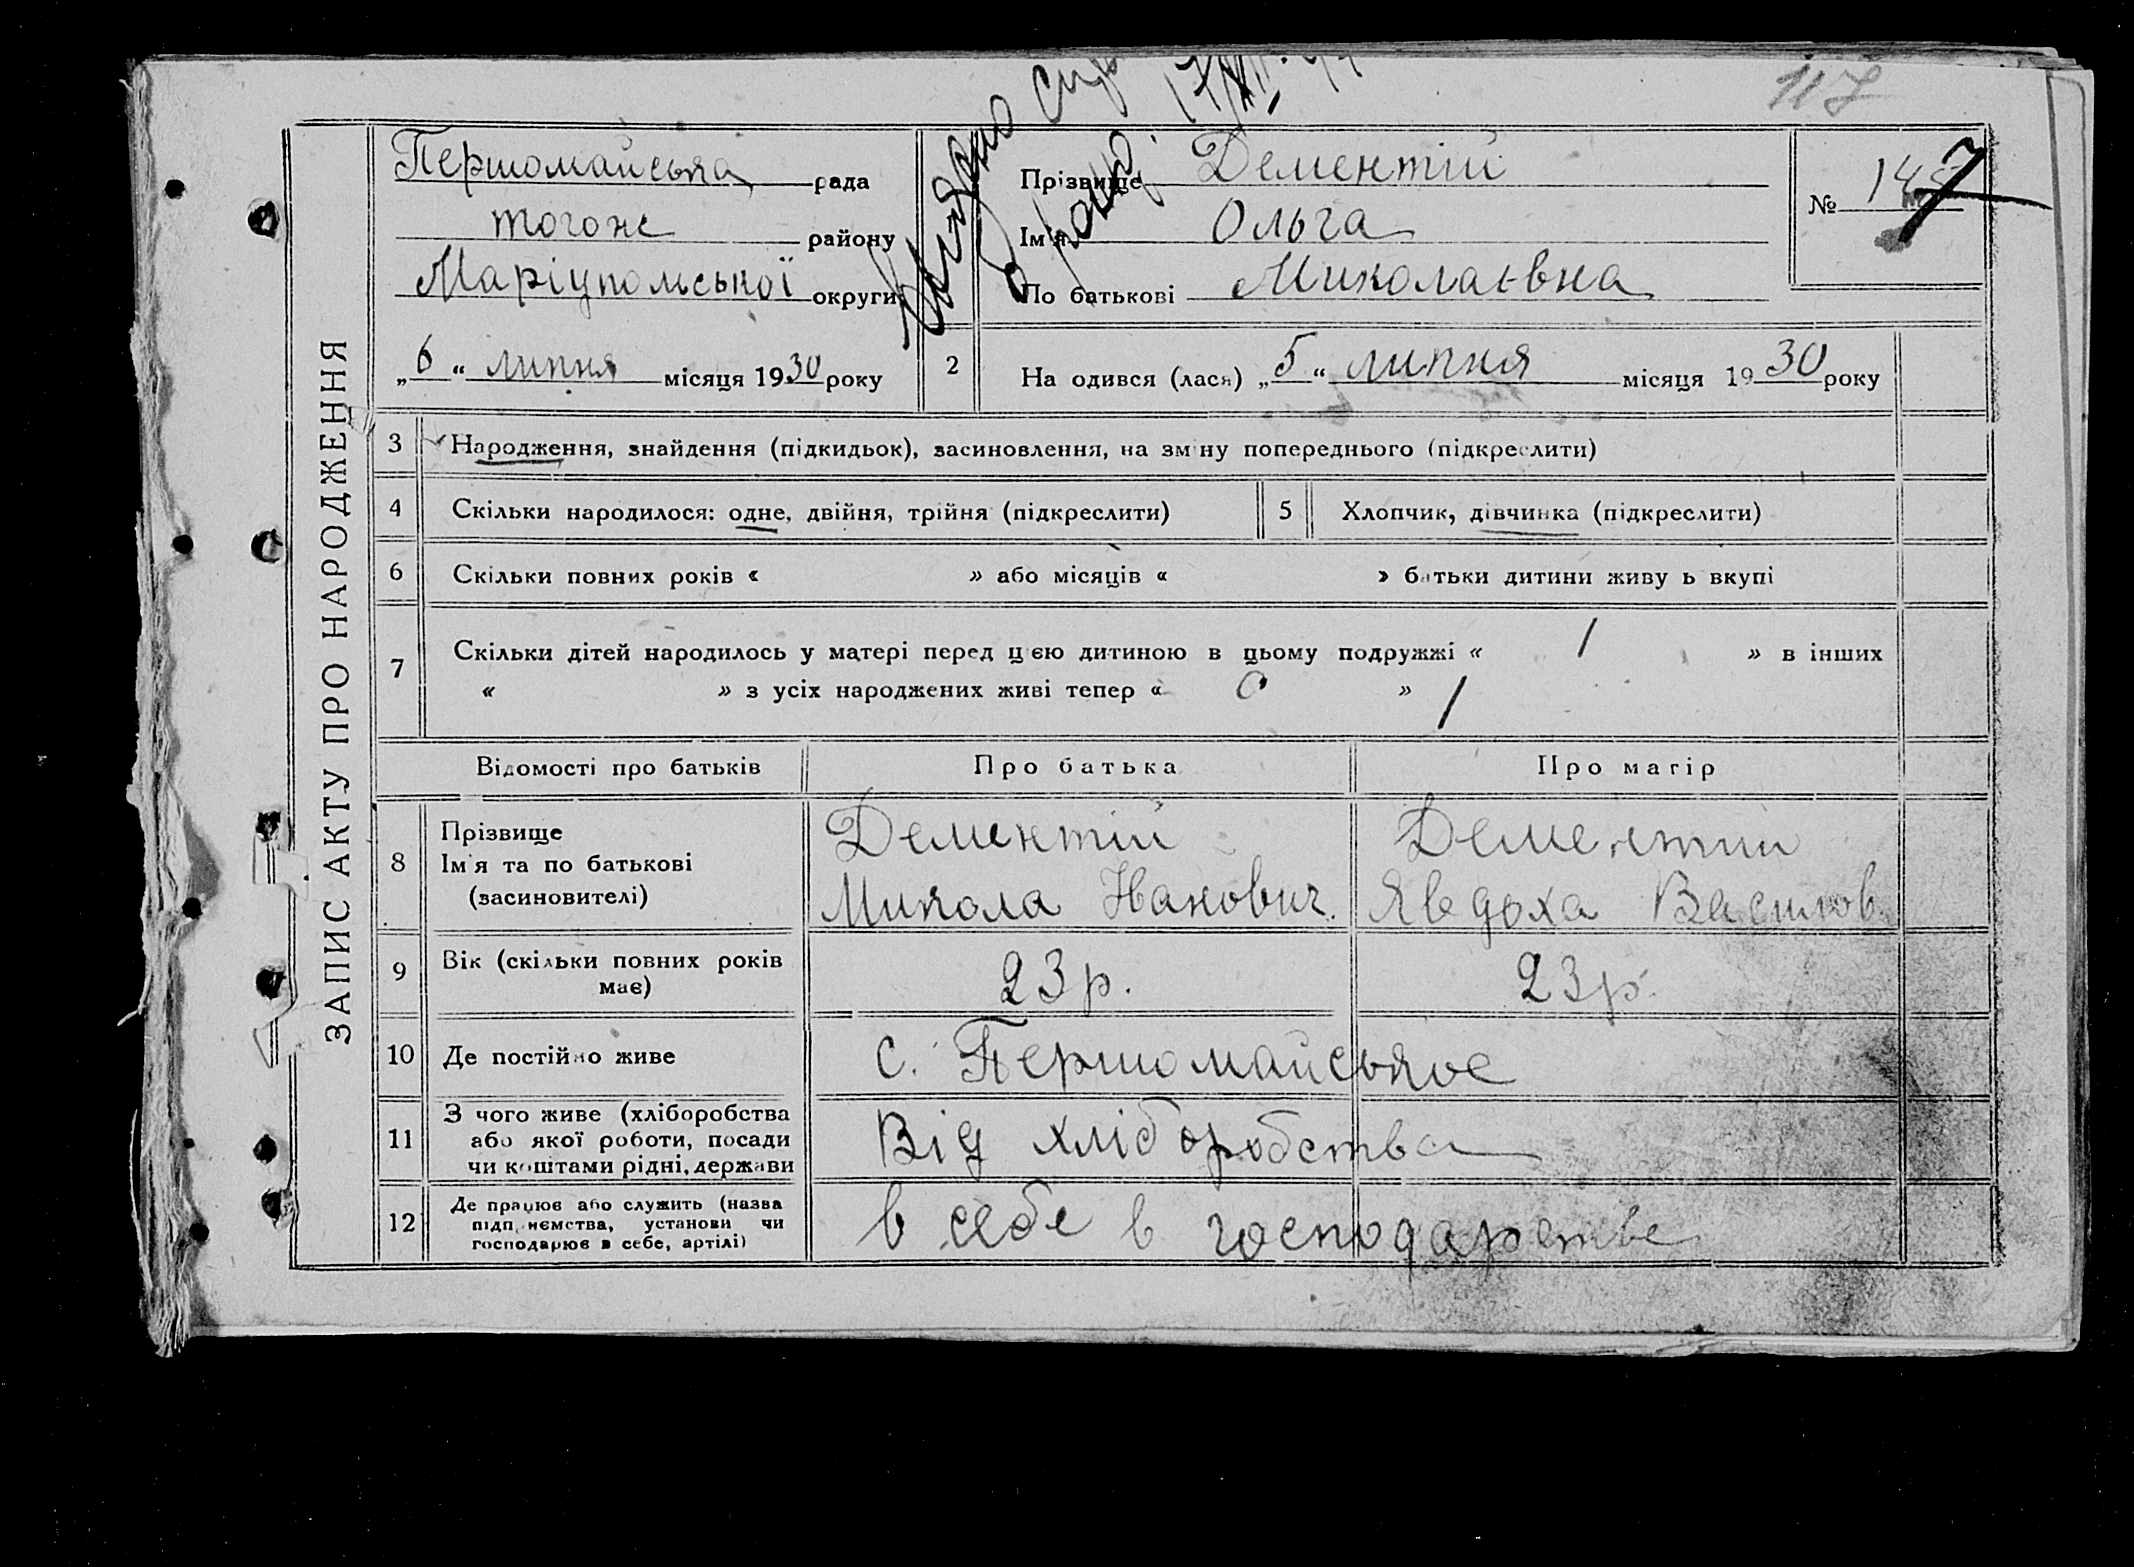 117
ЗАПИС АКТУ ПРО НАРОДЖЕННЯ
Першомайська рада
тогож району
Маріупольської округи
„6“ липня місяця 1930 року
Видано
Прізвище Дементій
Ім'я Ольга
По батькові Миколаєвна
№ 7
2 На одився (лася) „5“ липня місяця 1930 року
3 Народження, знайдення (підкидьок), засиновлення, на зміну попереднього (підкреслити)
4 Скільки народилося: одне, двійня, трійня (підкреслити) 5 Хлопчик, дівчинка (підкреслити)
6 Скільки повних років « » або місяців « » батьки дитини живу ь вкупі
7 Скільки дітей народилось у матері перед цією дитиною в цьому подружжі « 1 » в інших
« » з усіх народжених живі тепер « 0 » 1
Відомості про батьків Про батька Про матір
8 Прізвище
Ім'я та по батькові
(засиновителі)
Дементій
Микола Іванович.
Дементій
Явдоха Васильов.
9 Вік (скільки повних років
має)
23 р. 23 р.
10 Де постійно живе с. Першомайське
11 З чого живе (хліборобства
або якої роботи, посади
чи коштами рідні, держави
Від хліборобства
12 Де працює або служить (назва
підприємства, установи чи
господарює в себе, артілі)
в себе в господарстве